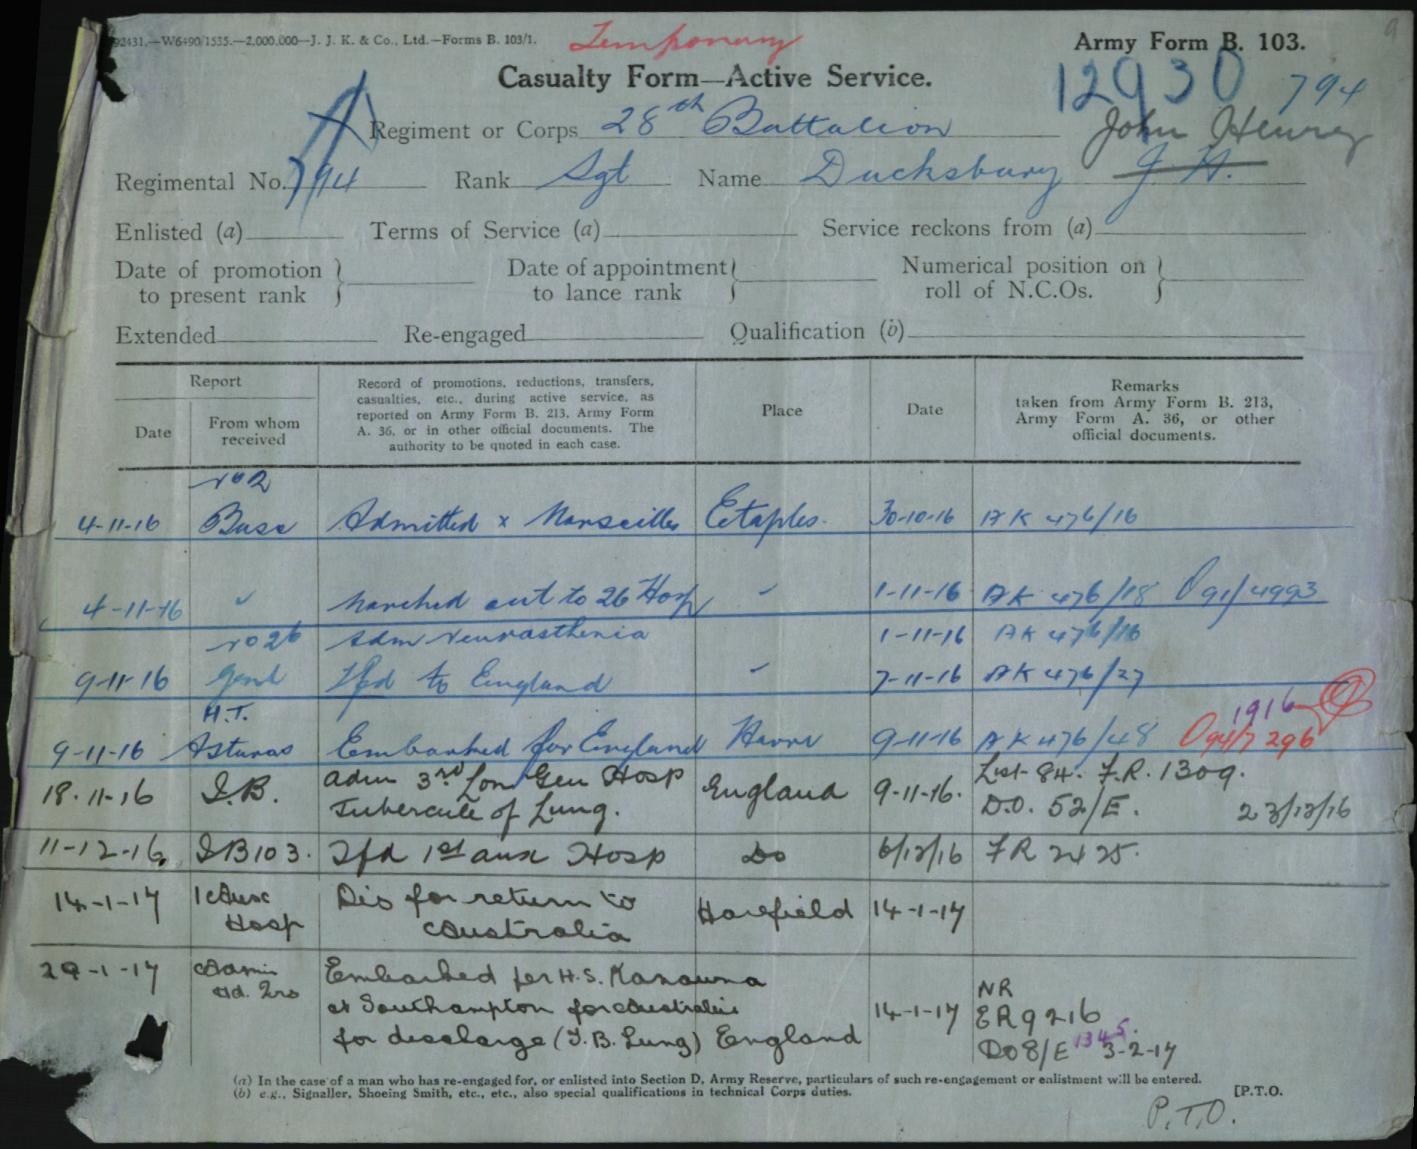 92431.—W6490/1535.—2,000,000—J. J. K. & Co., Ltd.—Forms B. 103/1.
Temporary
Army Form B. 103.
Casualty Form—Active Service.
12930 794
A Regiment or Corps 28th Battalion John Henry
Regimental No. 794 Rank Sgt Name Ducksbury J. H.
Enlisted (a) Terms of Service (a) Service reckons from (a)
Date of promotion to present rank Date of appointment to lance rank Numerical position on roll of N.C.Os.
Extended Re-engaged Qualification (b)
Report
Date
From whom received
Record of promotions, reductions, transfers,
casualties, etc., during active service, as
reported on Army Form B. 213, Army Form
A. 36, or in other official documents. The
authority to be quoted in each case.
Place
Date
Remarks
taken from Army Form B. 213,
Army Form A. 36, or other
official documents.
No 2
4-11-16 Base Admitted x Marseilles Etaples. 30-10-16 AK 476/16
4-11-16 " Marched out to 26 Hosp " 1-11-16 AK 476/18 O 91/4993
No 26 Adm Neurasthenia 1-11-16 AK 476/16
9-11-16 Genl Tfd to England " 7-11-16 AK 476/27
H.T. 1916
9-11-16 Asturas Embarked for England Havre 9-11-16 AK 476/48 296
18.11-16 I.B. adm 3rd Lon Gen Hosp England 9-11-16. List 84. F.R. 1309.
Tubercule of Lung. D.O. 52/E. 23/12/16
11-12-16. IB103. Tfd 1st aux Hosp Do 6/12/16 FR 2425.
14-1-17 1 Aux Dis for return to Harefield 14-1-17
Hosp Australia
29-1-17 Admin Embarked per H.S. Kanowna NR
Hd. Qrs at Southampton for Australia 14-1-17 ER9216
for discharge (T.B. Lung) England DO8/E 1345. 3-2-17
(a) In the case of a man who has re-engaged for, or enlisted into Section D, Army Reserve, particulars of such re-engagement or enlistment will be entered.
(b) e.g., Signaller, Shoeing Smith, etc., etc., also special qualifications in technical Corps duties. [P.T.O.
P.T.O.